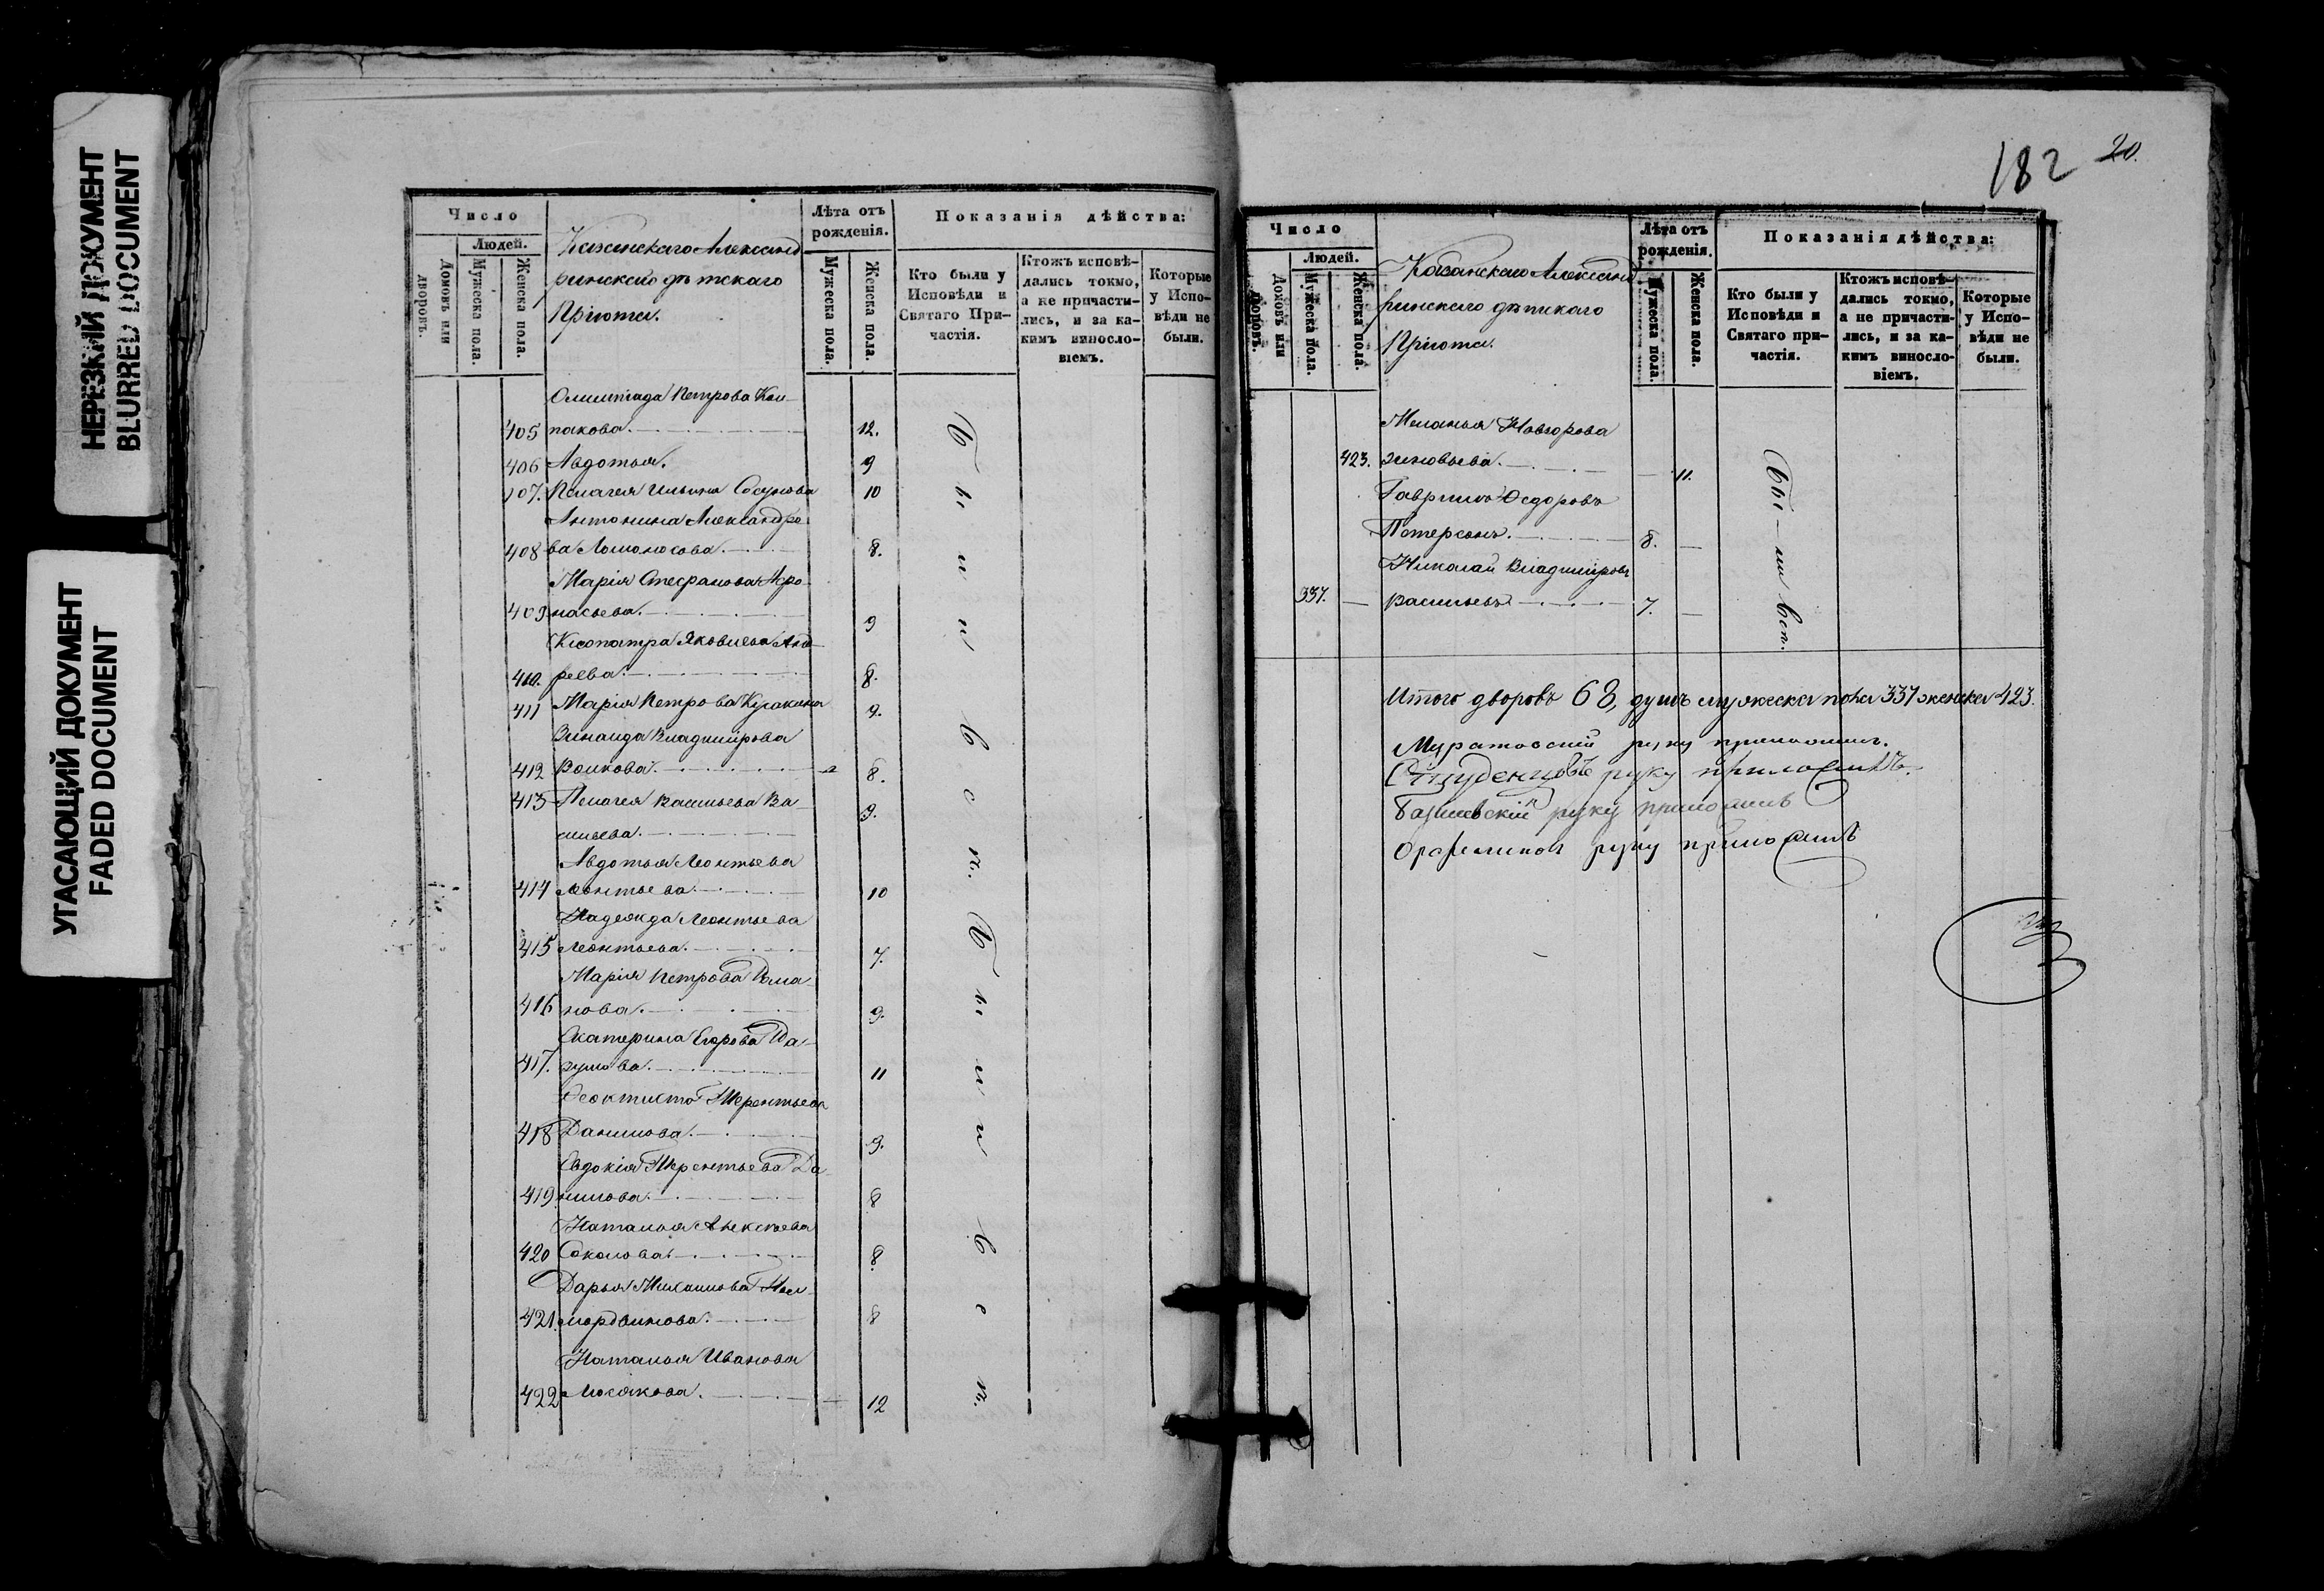 НЕРЕЗКИЙ ДОКУМЕНТ
BLURRED DOCUMENT
УГАСАЮЩИЙ ДОКУМЕНТ
FADED DOCUMENT
Число
Людей.
Домовъ или дворовъ.
Мужеска пола.
Женска пола.
Казанскаго Александ-
ринскаго дѣтскаго
Пріюта.
Лѣта отъ рожденія.
Мужеска пола.
Женска пола.
Показанія дѣйства:
Кто были у Исповѣди и Святаго При-частія.
Ктожъ исповѣ-дались токмо, а не причасти-лись, и за ка-кимъ винносло-віемъ.
Которые у Испо-вѣди не были.
Олимпіада Петрова Кол-
405 пакова. 12.
406 Авдотья. 9
407. Пелагея Ильина 10
Антонина Александро-
408 ва Ломоносова. 8.
Марія Стефанова Афо-
409 насьева. 9
Клеопатра Яковлева Анд-
410. реева. 8.
411 Марія Петрова Кулакина 9.
Зинаида Владимірова
412 Волкова. 8.
413 Пелагея Васильева Ва- 9.
сильева.
Авдотья Леонтьева
414 Леонтьева. 10
Надежда Леонтьева
415 Леонтьева. 7.
Марія Петрова Рома-
416 нова. 9.
Екатерина Егорова
417. 11
Феоктиста Терентьева
418 Данилова. 9.
Евдокія Терентьева Да-
419 нилова. 8
Наталья Алексѣева
420 Соколова. 8
Дарья Михаилова
421. мордвинова. 8
Наталья Иванова
422 12
Были всп.
Были всп.
182 20.
Число
Людей.
Домовъ или дворовъ.
Мужеска пола.
Женска пола.
Казанскаго Александ-
ринскаго дѣтскаго
Пріюта.
Лѣта отъ рожденія.
Мужеска пола.
Женска пола.
Показанія дѣйства:
Кто были у Исповѣди и Святаго при-частія.
Ктожъ исповѣ-дались токмо, а не причасти-лись, и за ка-кимъ винносло-віемъ.
Которые у Испо-вѣди не были.
Меланья
423. Зиновьева. 11.
Гаврилъ Федоровъ
Петерсонъ. 8.
Николай Владиміровъ
337. Васильевъ 7.
Были всп.
Итого дворовъ 68, душъ мужеска пола 337 женска 423.
Муратовскій руку приложилъ.
Студенцовъ руку приложилъ.
руку приложилъ
руку приложилъ